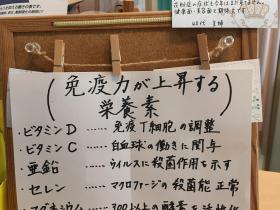 40代 主婦
(免疫力が上昇する)
栄養素
・ビタミンD ……免疫T細胞の調整
・ビタミンC ……白血球の働きに関与
・亜鉛 ……ウイルスに殺菌作用を示す
・セレン ……マクロファージの殺菌能 正常
・マグネシウム ……300以上の酵素を活性化